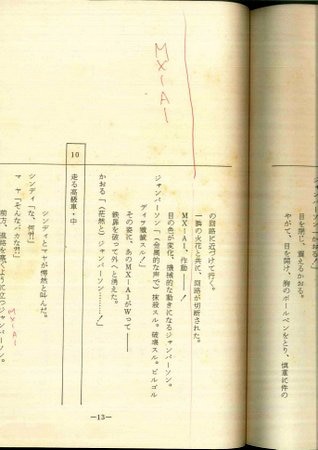 ジャンパーソン「かおる！」
目を閉じ、震えるかおる。
やがて、目を開け、胸のボールペンをとり、慎重に件の
の回路に近づけて行く。
一瞬の火花と共に、回路が切断された。
MXIA1、作動――！
目の色が変化、機械的な動きになるジャンパーソン。
ジャンパーソン「(金属的な声で)抹殺スル。破壊スル。ビルゴル
ディヲ殲滅スル！」
その姿に、あのMXIA1がWって――
鉄扉を破って外へと消えた。
かおる「(茫然と)ジャンパーソン……！」
10 走る高級車・中
シンディとマヤが愕然と叫んだ。
シンディ「な、何!?」
マヤ「そんなバカな!!」
前方、進路を塞ぐように立つジャンパーソン。
MXIAI
MXIAI
―13―